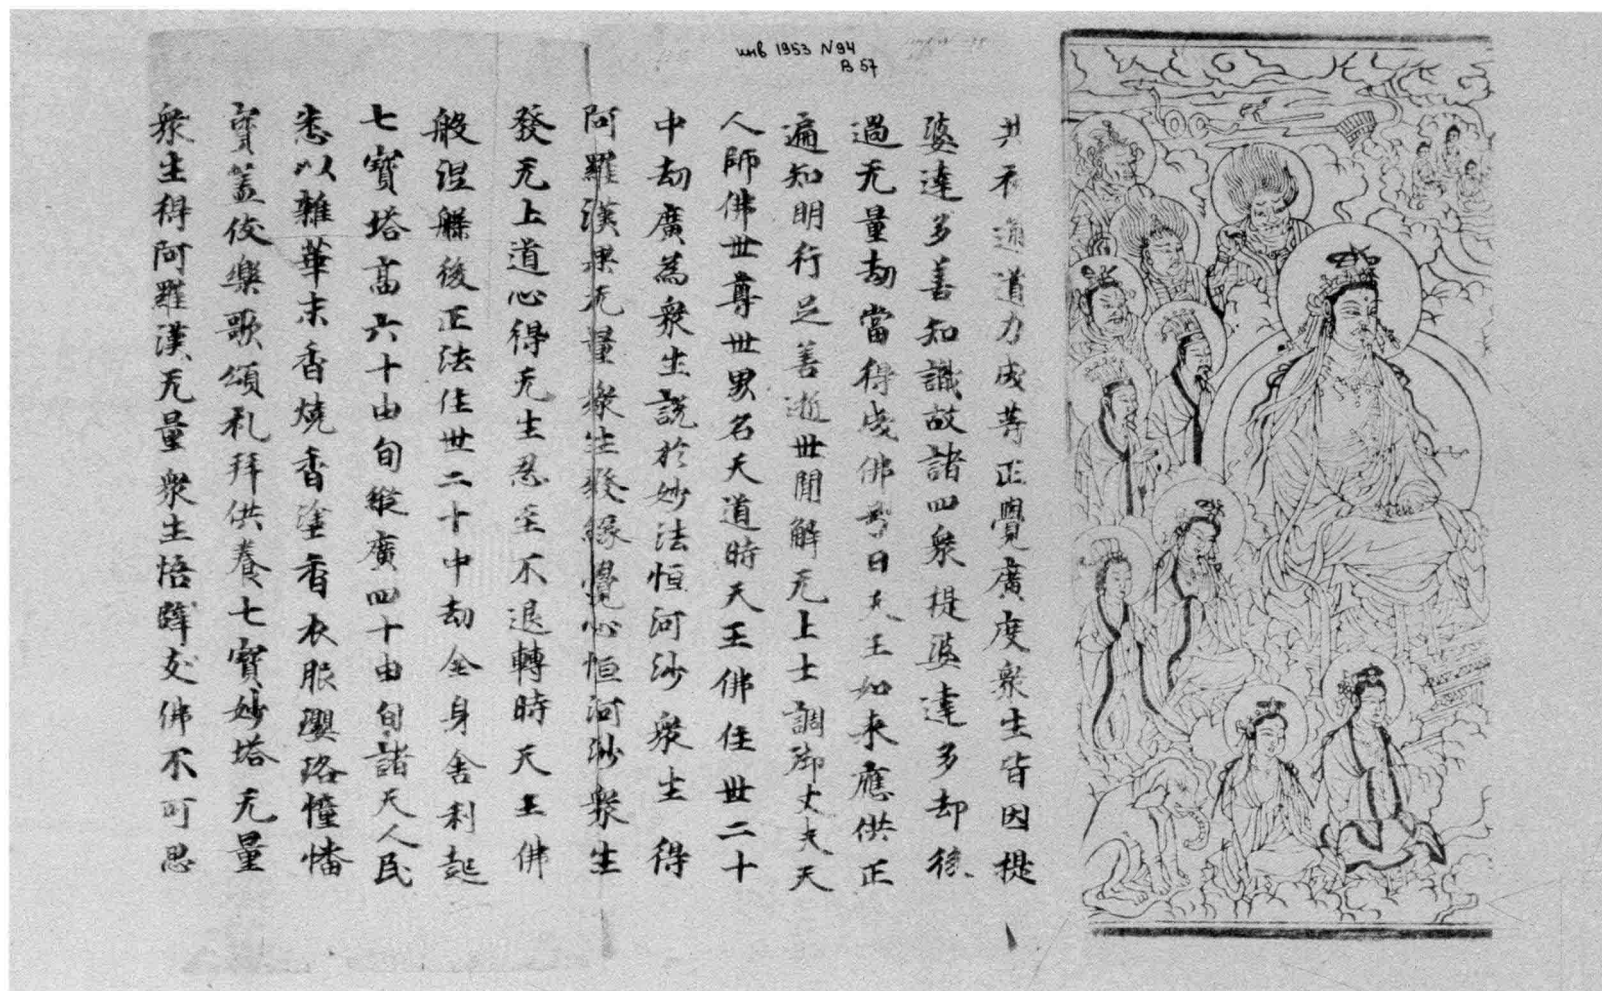 инв 1953 N 94
B 57
共不 道力成等正覺廣度衆生皆因提
婆達多善知識故諸四衆提婆達多却後
過无量劫當得成佛号曰天王如来應供正
遍知明行足善逝世閒解无上士調御丈夫天
人師佛世尊世界名天道時天王佛住世二十
中劫廣為衆生說於妙法恒河沙衆生得
阿羅漢果无量衆生發緣覺心恒河沙衆生
發无上道心得无生忍至不退轉時天王佛
般涅槃後正法住世二十中劫全身舍利起
七寶塔高六十由旬縱廣四十由旬諸天人民
悉以雜華末香燒香塗香衣服瓔珞幢幡
寶盖伎樂歌頌礼拜供養七寶妙塔无量
衆生得阿羅漢无量衆生悟辟支佛不可思